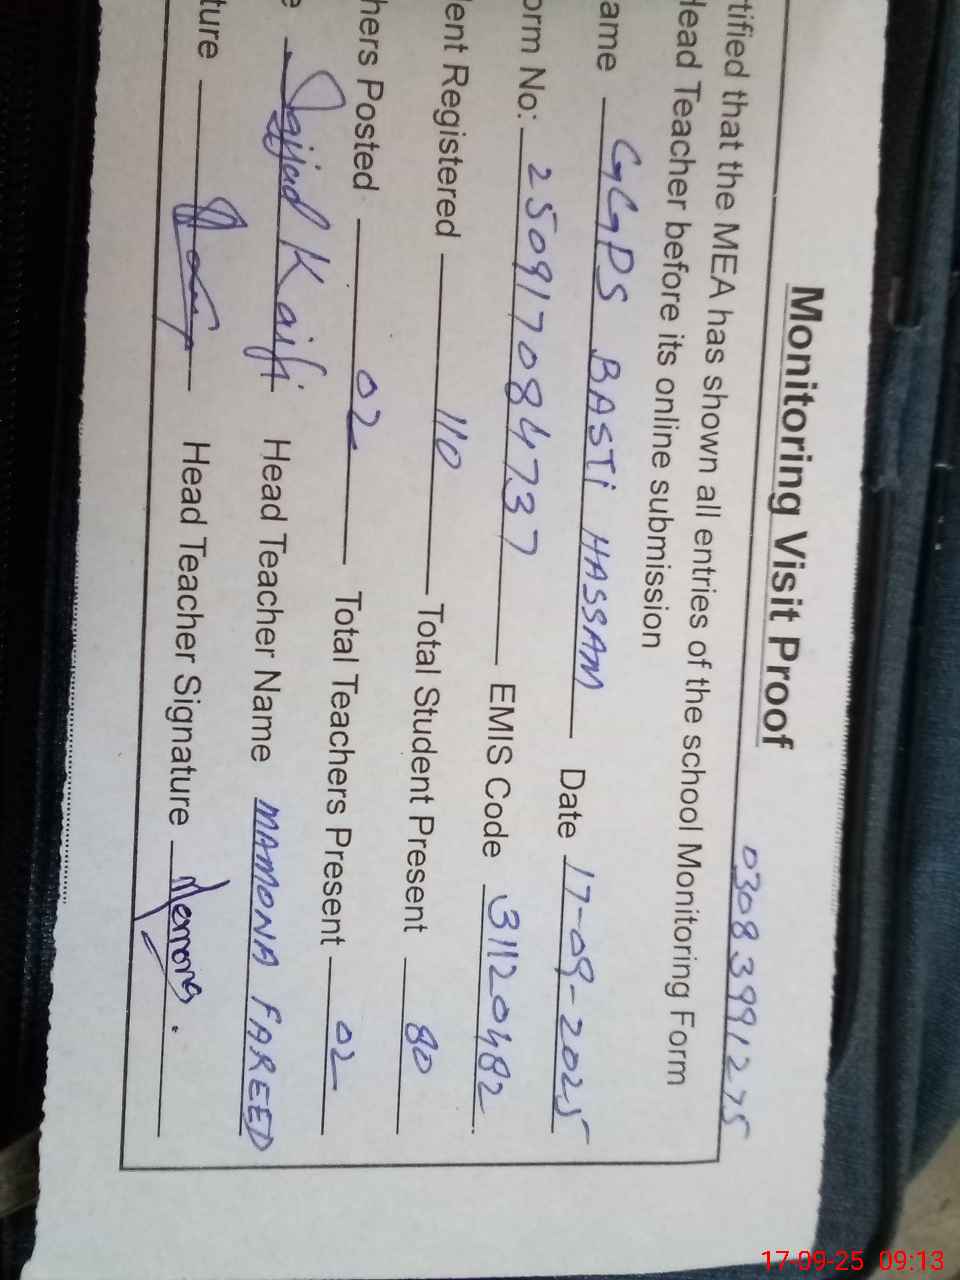 Monitoring Visit Proof
03083991275
tified that the MEA has shown all entries of the school Monitoring Form
Head Teacher before its online submission
ame GGPS BASTi HASSAM Date 17-09-2025
orm No: 250917084737 EMIS Code 31120482
ent Registered 110 Total Student Present 80
hers Posted 02 Total Teachers Present 02
e Sajjad Kaifi Head Teacher Name MAMONA FAREED
ture Head Teacher Signature Mamona.
17-09-25 09:13